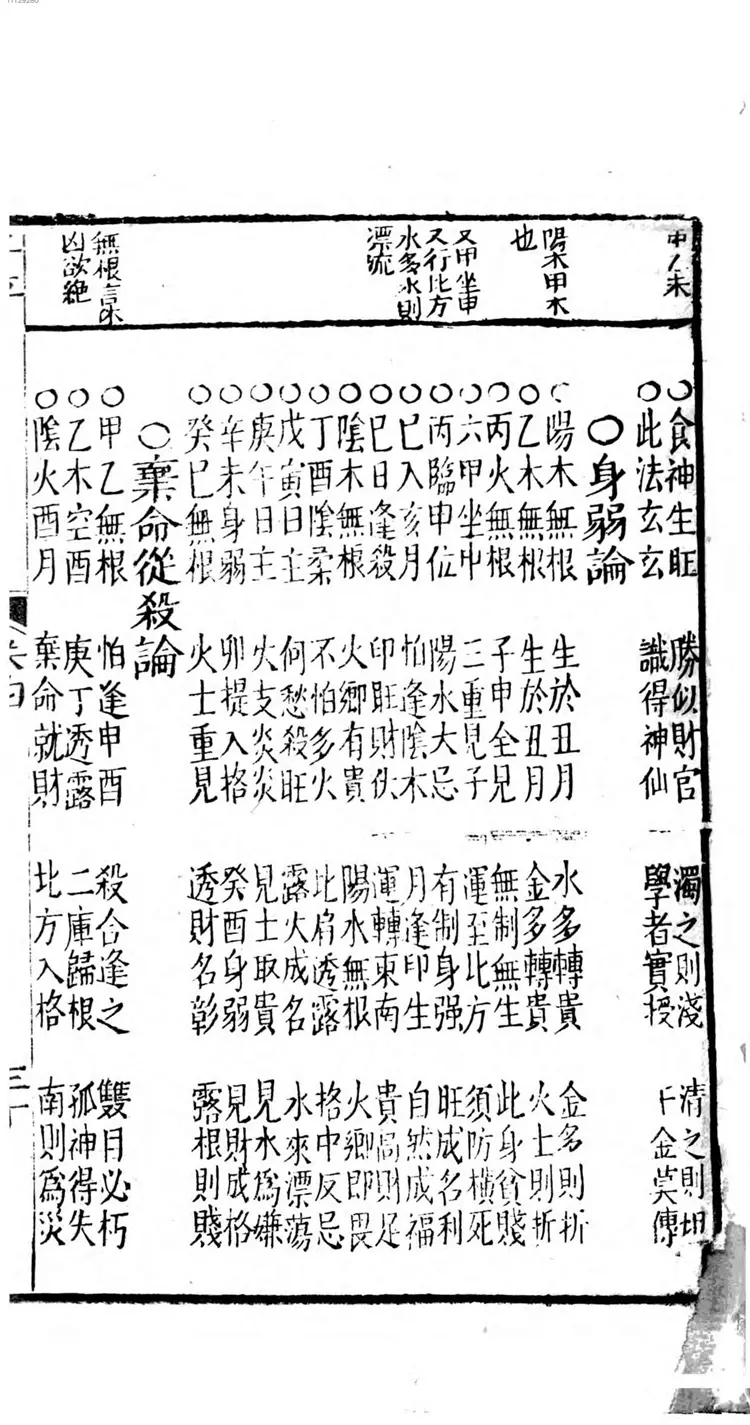 ○食神生旺 勝似財官 濁之則淺 清之則坦
○此法玄玄 識得神仙 學者實授 千金莫傳
○身弱論
○陽木無根 生於丑月 水多轉貴 金多則折
○乙木無根 生於丑月 金多轉貴 火土則折
○丙火無根 子申全見 無制無生 此身貧賤
○六甲坐申 三重見子 運至北方 須防橫死
○丙臨申位 陽水大忌 有制身强 旺成名利
○己入亥月 怕逢陰木 月逢印生 自然成福
○己日逢殺 印旺財伏 運轉東南 貴高財足
○陰木無根 火鄉有貴 陽水無根 火鄉即畏
○丁酉陰柔 不怕多火 比肩透露 格中反忌
○戊寅日主 何愁殺旺 露火成名 水來漂蕩
○庚午日主 火支炎炎 見土取貴 見水爲嫌
○辛未身弱 卯提入格 癸酉身弱 見財成格
○癸巳無根 火土重見 透財名彰 露根則賤
○棄命從殺論
○甲乙無根 怕逢申酉 殺合逢之 雙目必朽
○乙木空酉 庚丁透露 二庫歸根 孤神得失
○陰火酉月 棄命就財 北方入格 南則爲災
陽木甲木
也
又甲坐申
又行比方
水多水則
漂流
無根言木
凶欲絶
三十